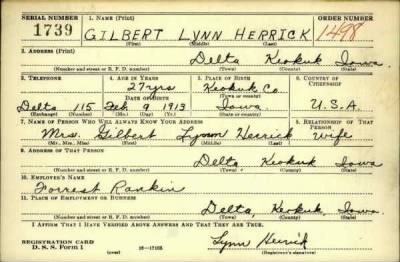 SERIAL NUMBER 1. NAME (Print) ORDER NUMBER
1739 GILBERT LYNN HERRICK 1498
(First) (Middle) (Last)
2. ADDRESS (Print)
Delta Keokuk Iowa
(Number and street or R. F. D. number) (Town) (County) (State)
3. TELEPHONE 4. AGE IN YEARS 5. PLACE OF BIRTH 6. COUNTRY OF CITIZENSHIP
27 yrs Keokuk Co.
DATE OF BIRTH (Town or county)
Delta 115 Feb 9 1913 Iowa U.S.A.
(Exchange) (Number) (Mo.) (Day) (Yr.) (State or country)
7. NAME OF PERSON WHO WILL ALWAYS KNOW YOUR ADDRESS 8. RELATIONSHIP OF THAT PERSON
Mrs. Gilbert Lynn Herrick wife
(Mr., Mrs., Miss) (First) (Middle) (Last)
9. ADDRESS OF THAT PERSON
Delta, Keokuk Iowa
(Number and street or R. F. D. number) (Town) (County) (State)
10. EMPLOYER'S NAME
Forrest Rankin
11. PLACE OF EMPLOYMENT OR BUSINESS
Delta, Keokuk, Iowa.
(Number and street or R. F. D. number) (Town) (County) (State)
I AFFIRM THAT I HAVE VERIFIED ABOVE ANSWERS AND THAT THEY ARE TRUE.
REGISTRATION CARD
D. S. S. Form 1 (over) Lynn Herrick
(Registrant's signature)